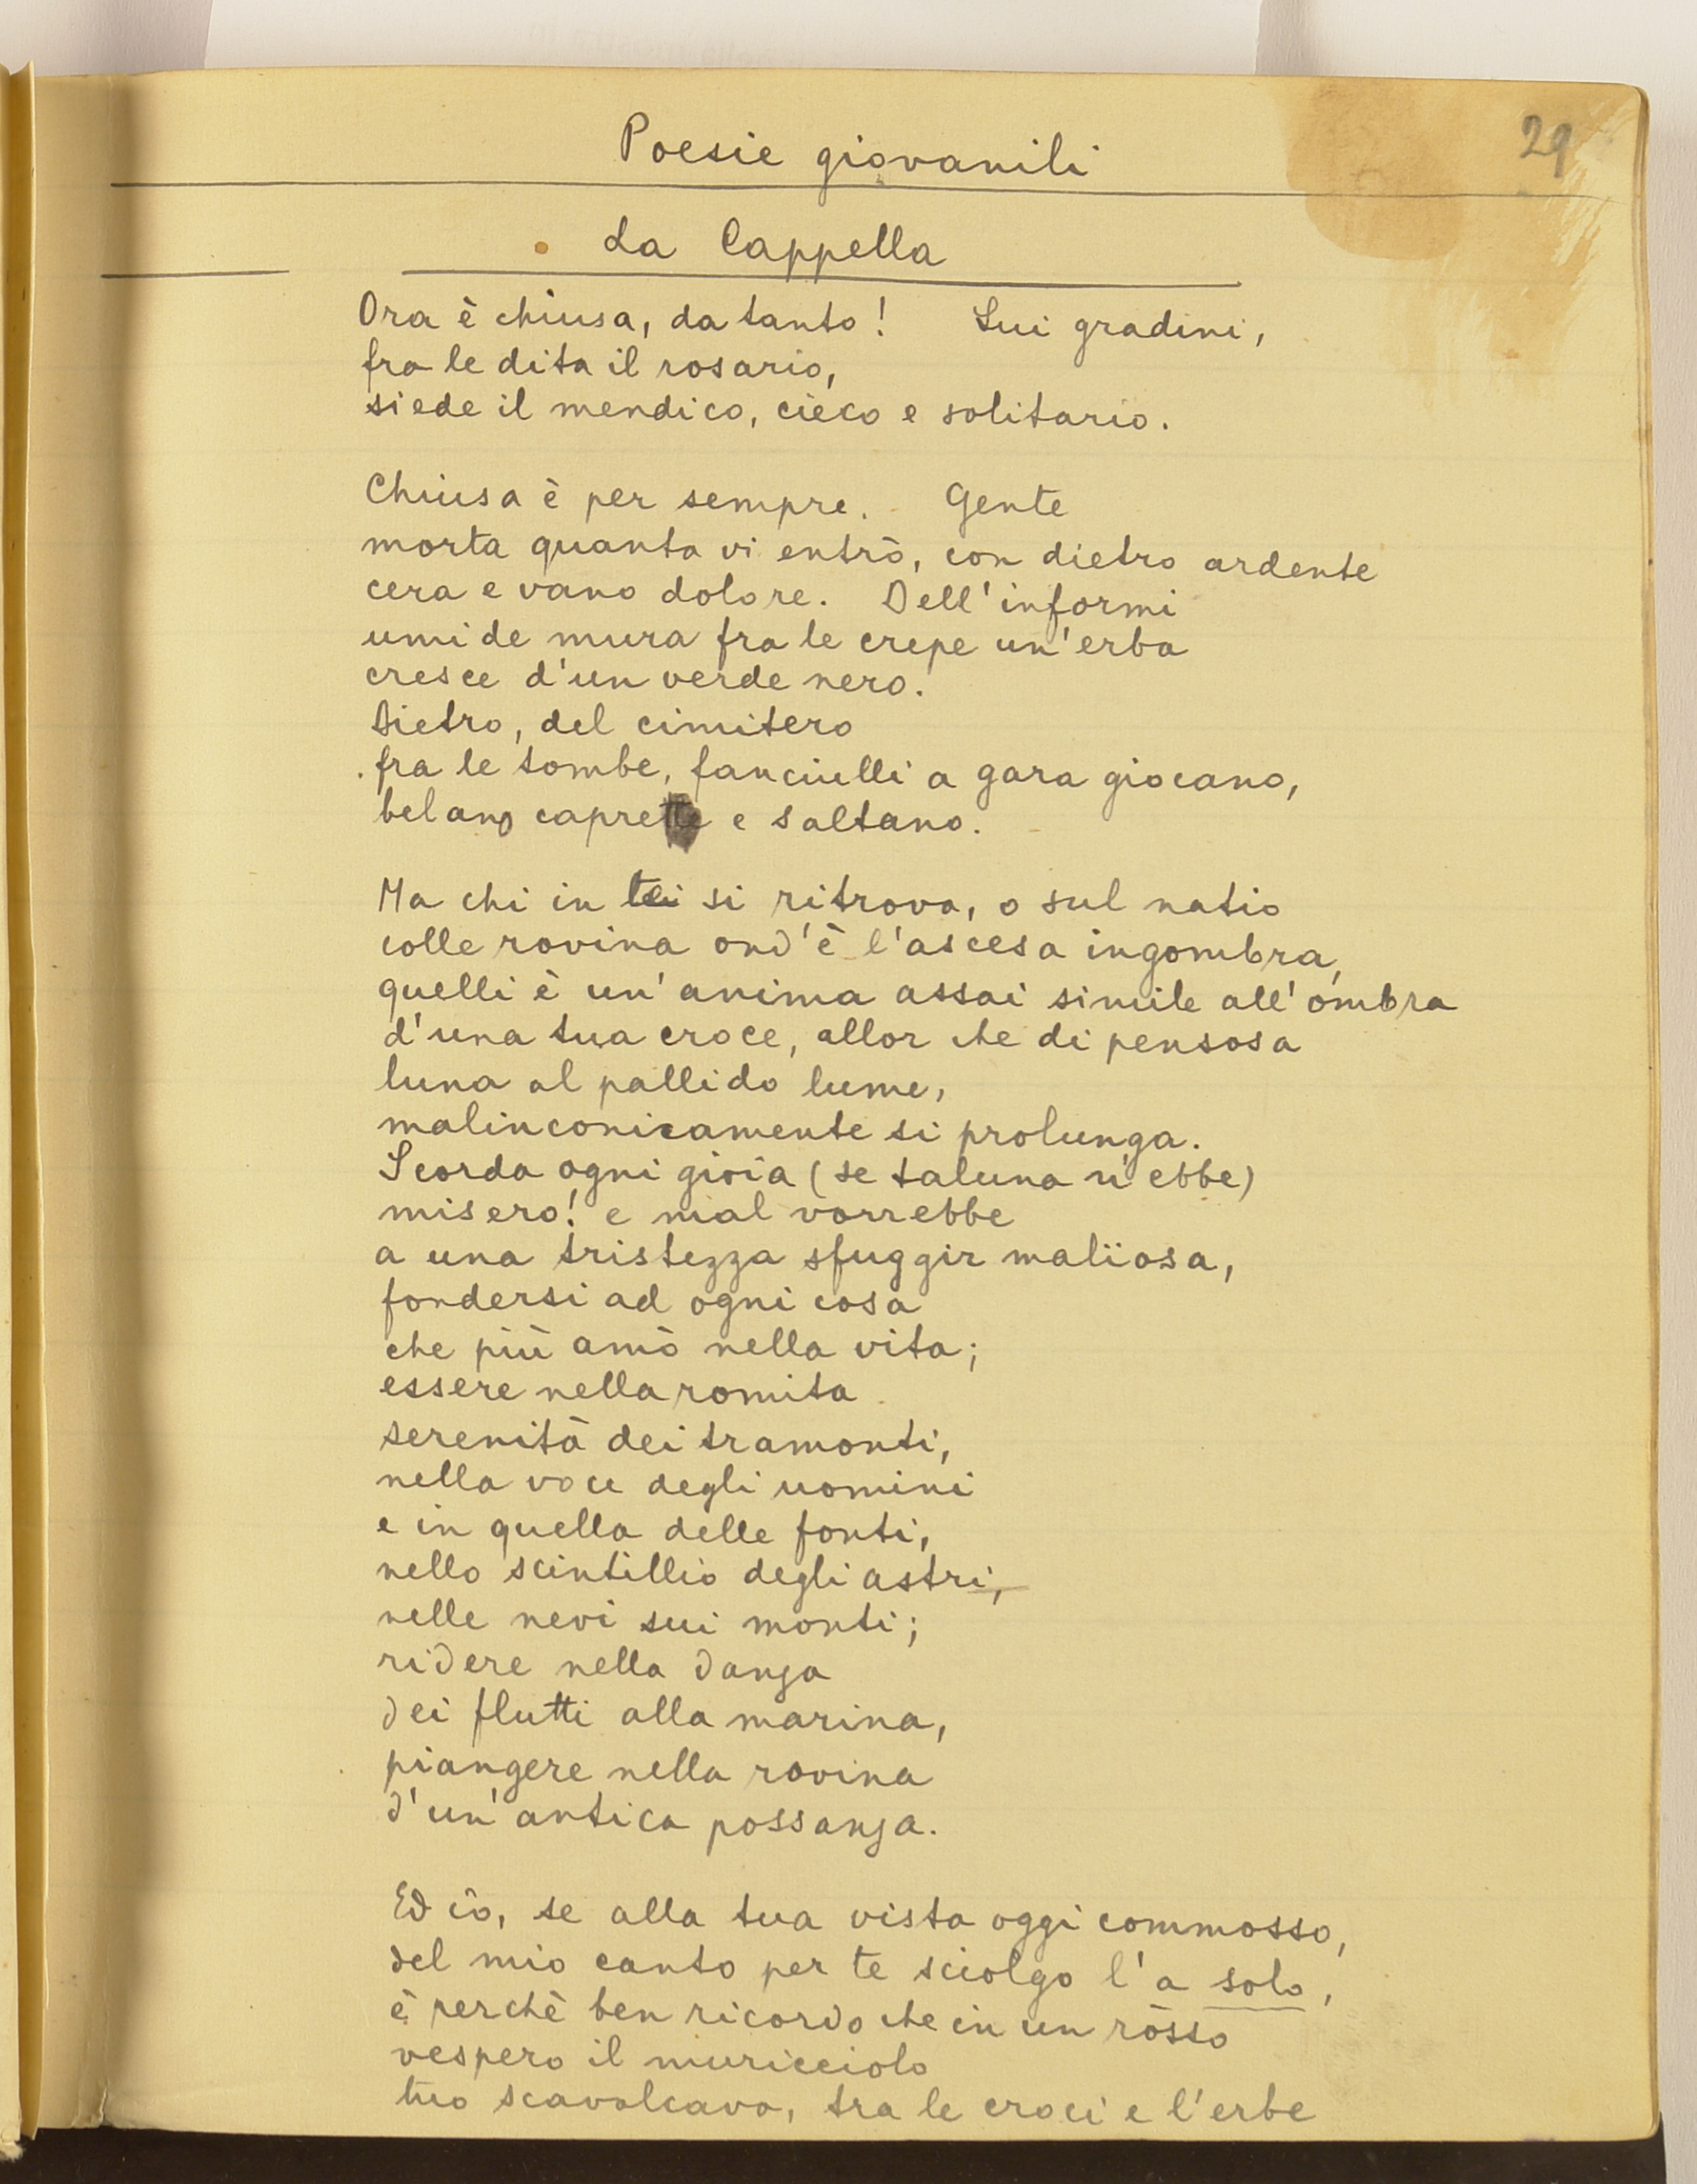 29
Poesie giovanili
La Cappella
Ora è chiusa, da tanto! Sui gradini,
fra le dita il rosario,
siede il mendico, cieco e solitario.
Chiusa è per sempre. Gente
morta quanta vi entrò, con dietro ardente
cera e vano dolore. Dell'informi
umide mura fra le crepe un'erba
cresce d'un verde nero.
Dietro, del cimitero
fra le tombe, fanciulli a gara giocano,
belano caprette e saltano.
Ma chi in te si ritrova, o sul natio
colle rovina ond'è l'ascesa ingombra,
quelli è un'anima assai simile all'ombra
d'una tua croce, allor che di pensosa
luna al pallido lume,
malinconicamente si prolunga.
Scorda ogni gioia (se taluna n'ebbe)
misero! e mal vorrebbe
a una tristezza sfuggir malïosa,
fondersi ad ogni cosa
che più amò nella vita;
essere nella romita
serenità dei tramonti,
nella voce degli uomini
e in quella delle fonti,
nello scintillio degli astri,
nelle nevi sui monti;
ridere nella danza
dei flutti alla marina,
piangere nella rovina
d'un'antica possanza.
Ed io, se alla tua vista oggi commosso,
del mio canto per te sciolgo l'a solo,
è perchè ben ricordo che in un rosso
vespero il muricciolo
tuo scavalcavo, tra le croci e l'erbe